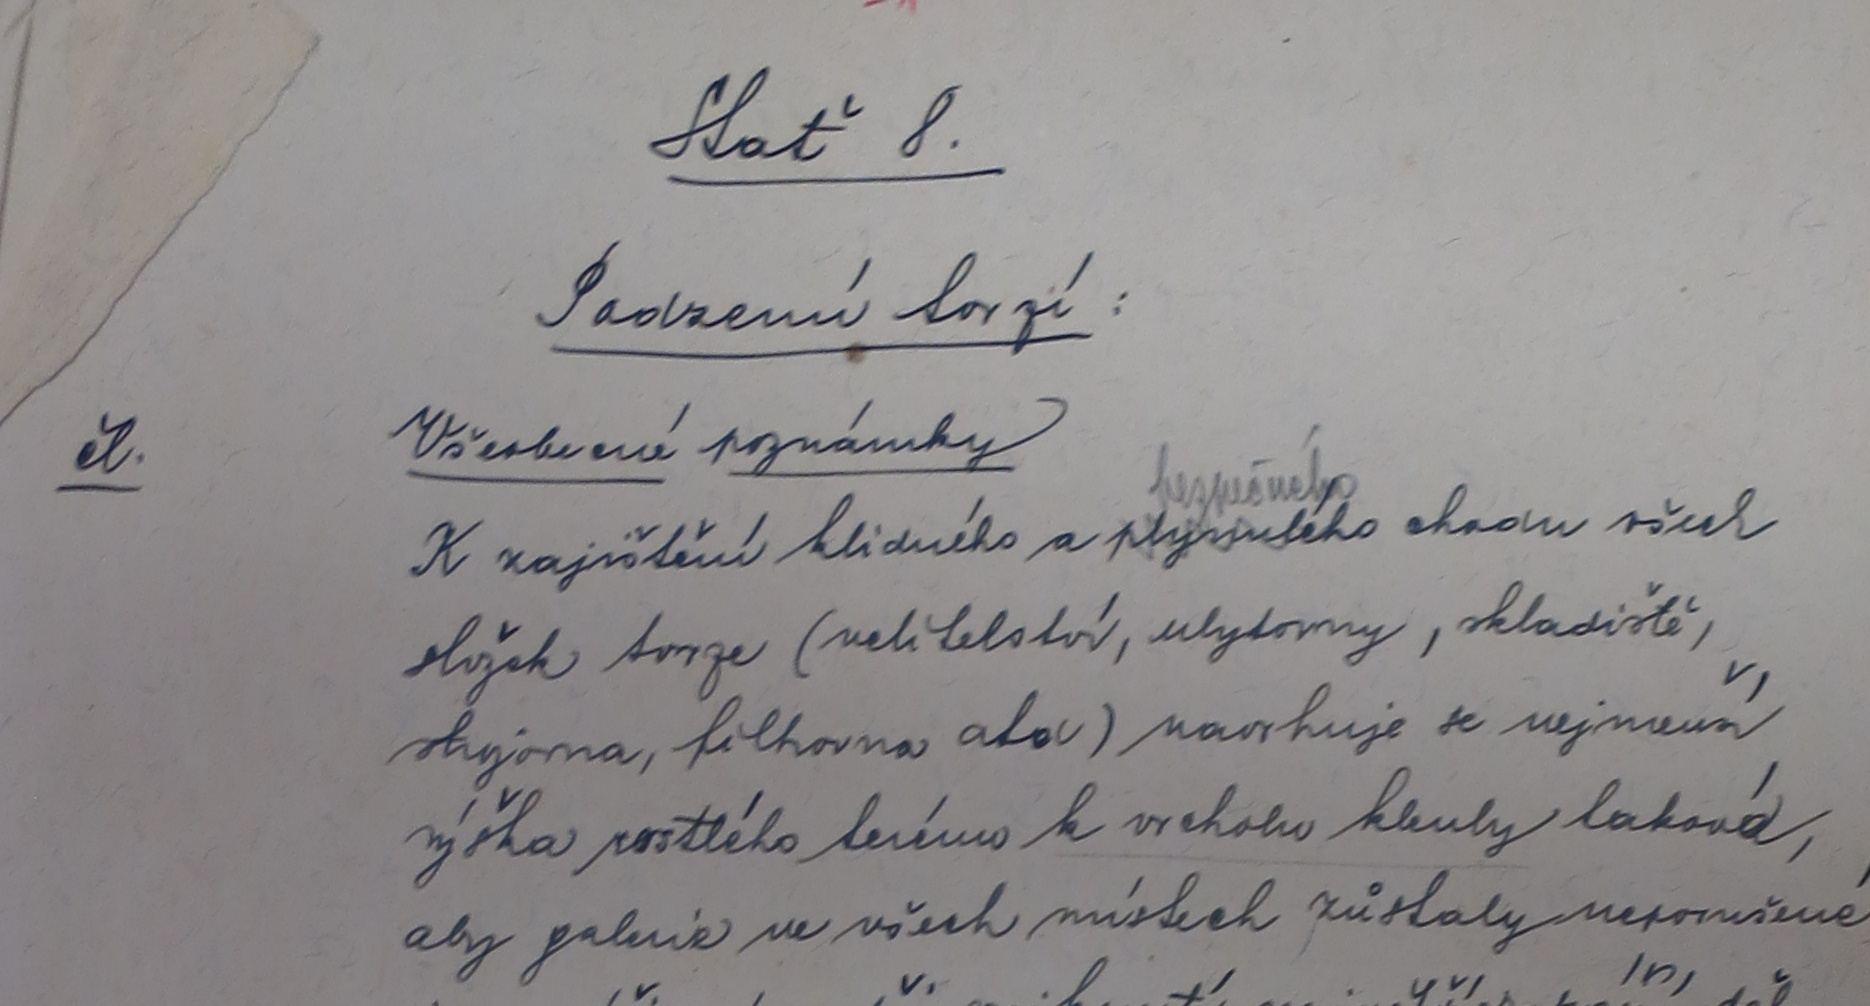 Stať 8.
Podzemní tvrzí:
čl. Všeobecné poznámky
bezpečného
K zajištění klidného a plynulého chodu všech
složek tvrze (velitelství, ubytovny, skladiště,
strojovna, filtrovna atd) navrhuje se nejmenší
výška rostlého terénu k vrcholu klenby taková,
aby galerie ve všech místech zůstaly neporušené